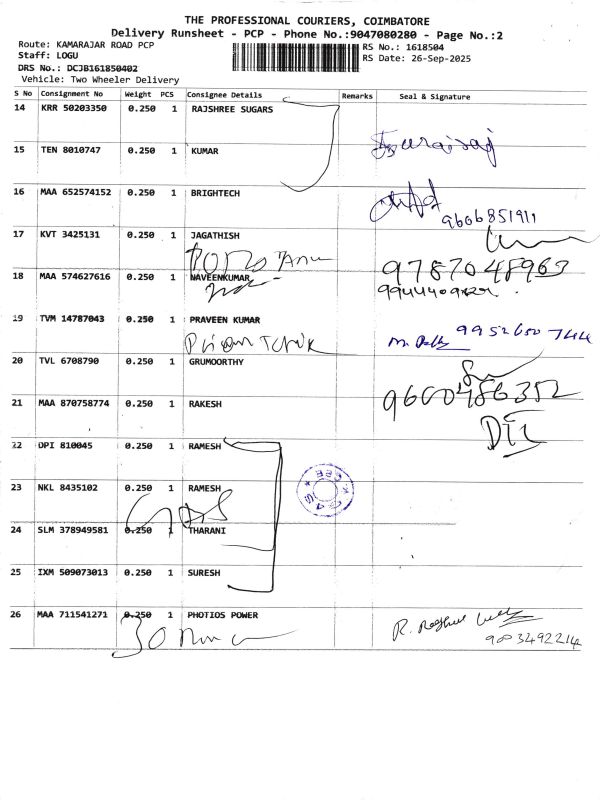 THE PROFESSIONAL COURIERS, COIMBATORE
Delivery Runsheet - PCP - Phone No.:9047080280 - Page No.:2
Route: KAMARAJAR ROAD PCP
RS No.: 1618504
Staff: LOGU
RS Date: 26-Sep-2025
DRS No.: DCJB161850402
Vehicle: Two Wheeler Delivery
S No Consignment No Weight PCS Consignee Details Remarks Seal & Signature
14 KRR 50203350 0.250 1 RAJSHREE SUGARS
15 TEN 8010747 0.250 1 KUMAR
16 MAA 652574152 0.250 1 BRIGHTECH
9606851911
17 KVT 3425131 0.250 1 JAGATHISH
9787048963
18 MAA 574627616 0.250 1 NAVEENKUMAR
19 TVM 14787043 0.250 1 PRAVEEN KUMAR
9952650744
20 TVL 6708790 0.250 1 GRUMOORTHY
9600486352
21 MAA 870758774 0.250 1 RAKESH
22 DPI 810045 0.250 1 RAMESH
23 NKL 8435102 0.250 1 RAMESH
24 SLM 378949581 0.250 1 THARANI
25 IXM 509073013 0.250 1 SURESH
26 MAA 711541271 0.250 1 PHOTIOS POWER
9003492214